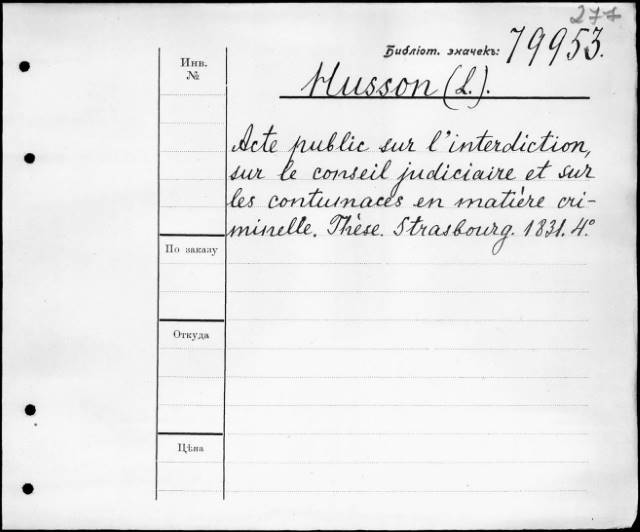 277
Библіот. значекъ: 79953.
Инв. №
Husson (L.).
Acte public sur l'interdiction,
sur le conseil judiciaire et sur
les contumaces en matière cri-
minelle. Thèse. Strasbourg. 1831. 4º
По заказу
Откуда
Цѣна